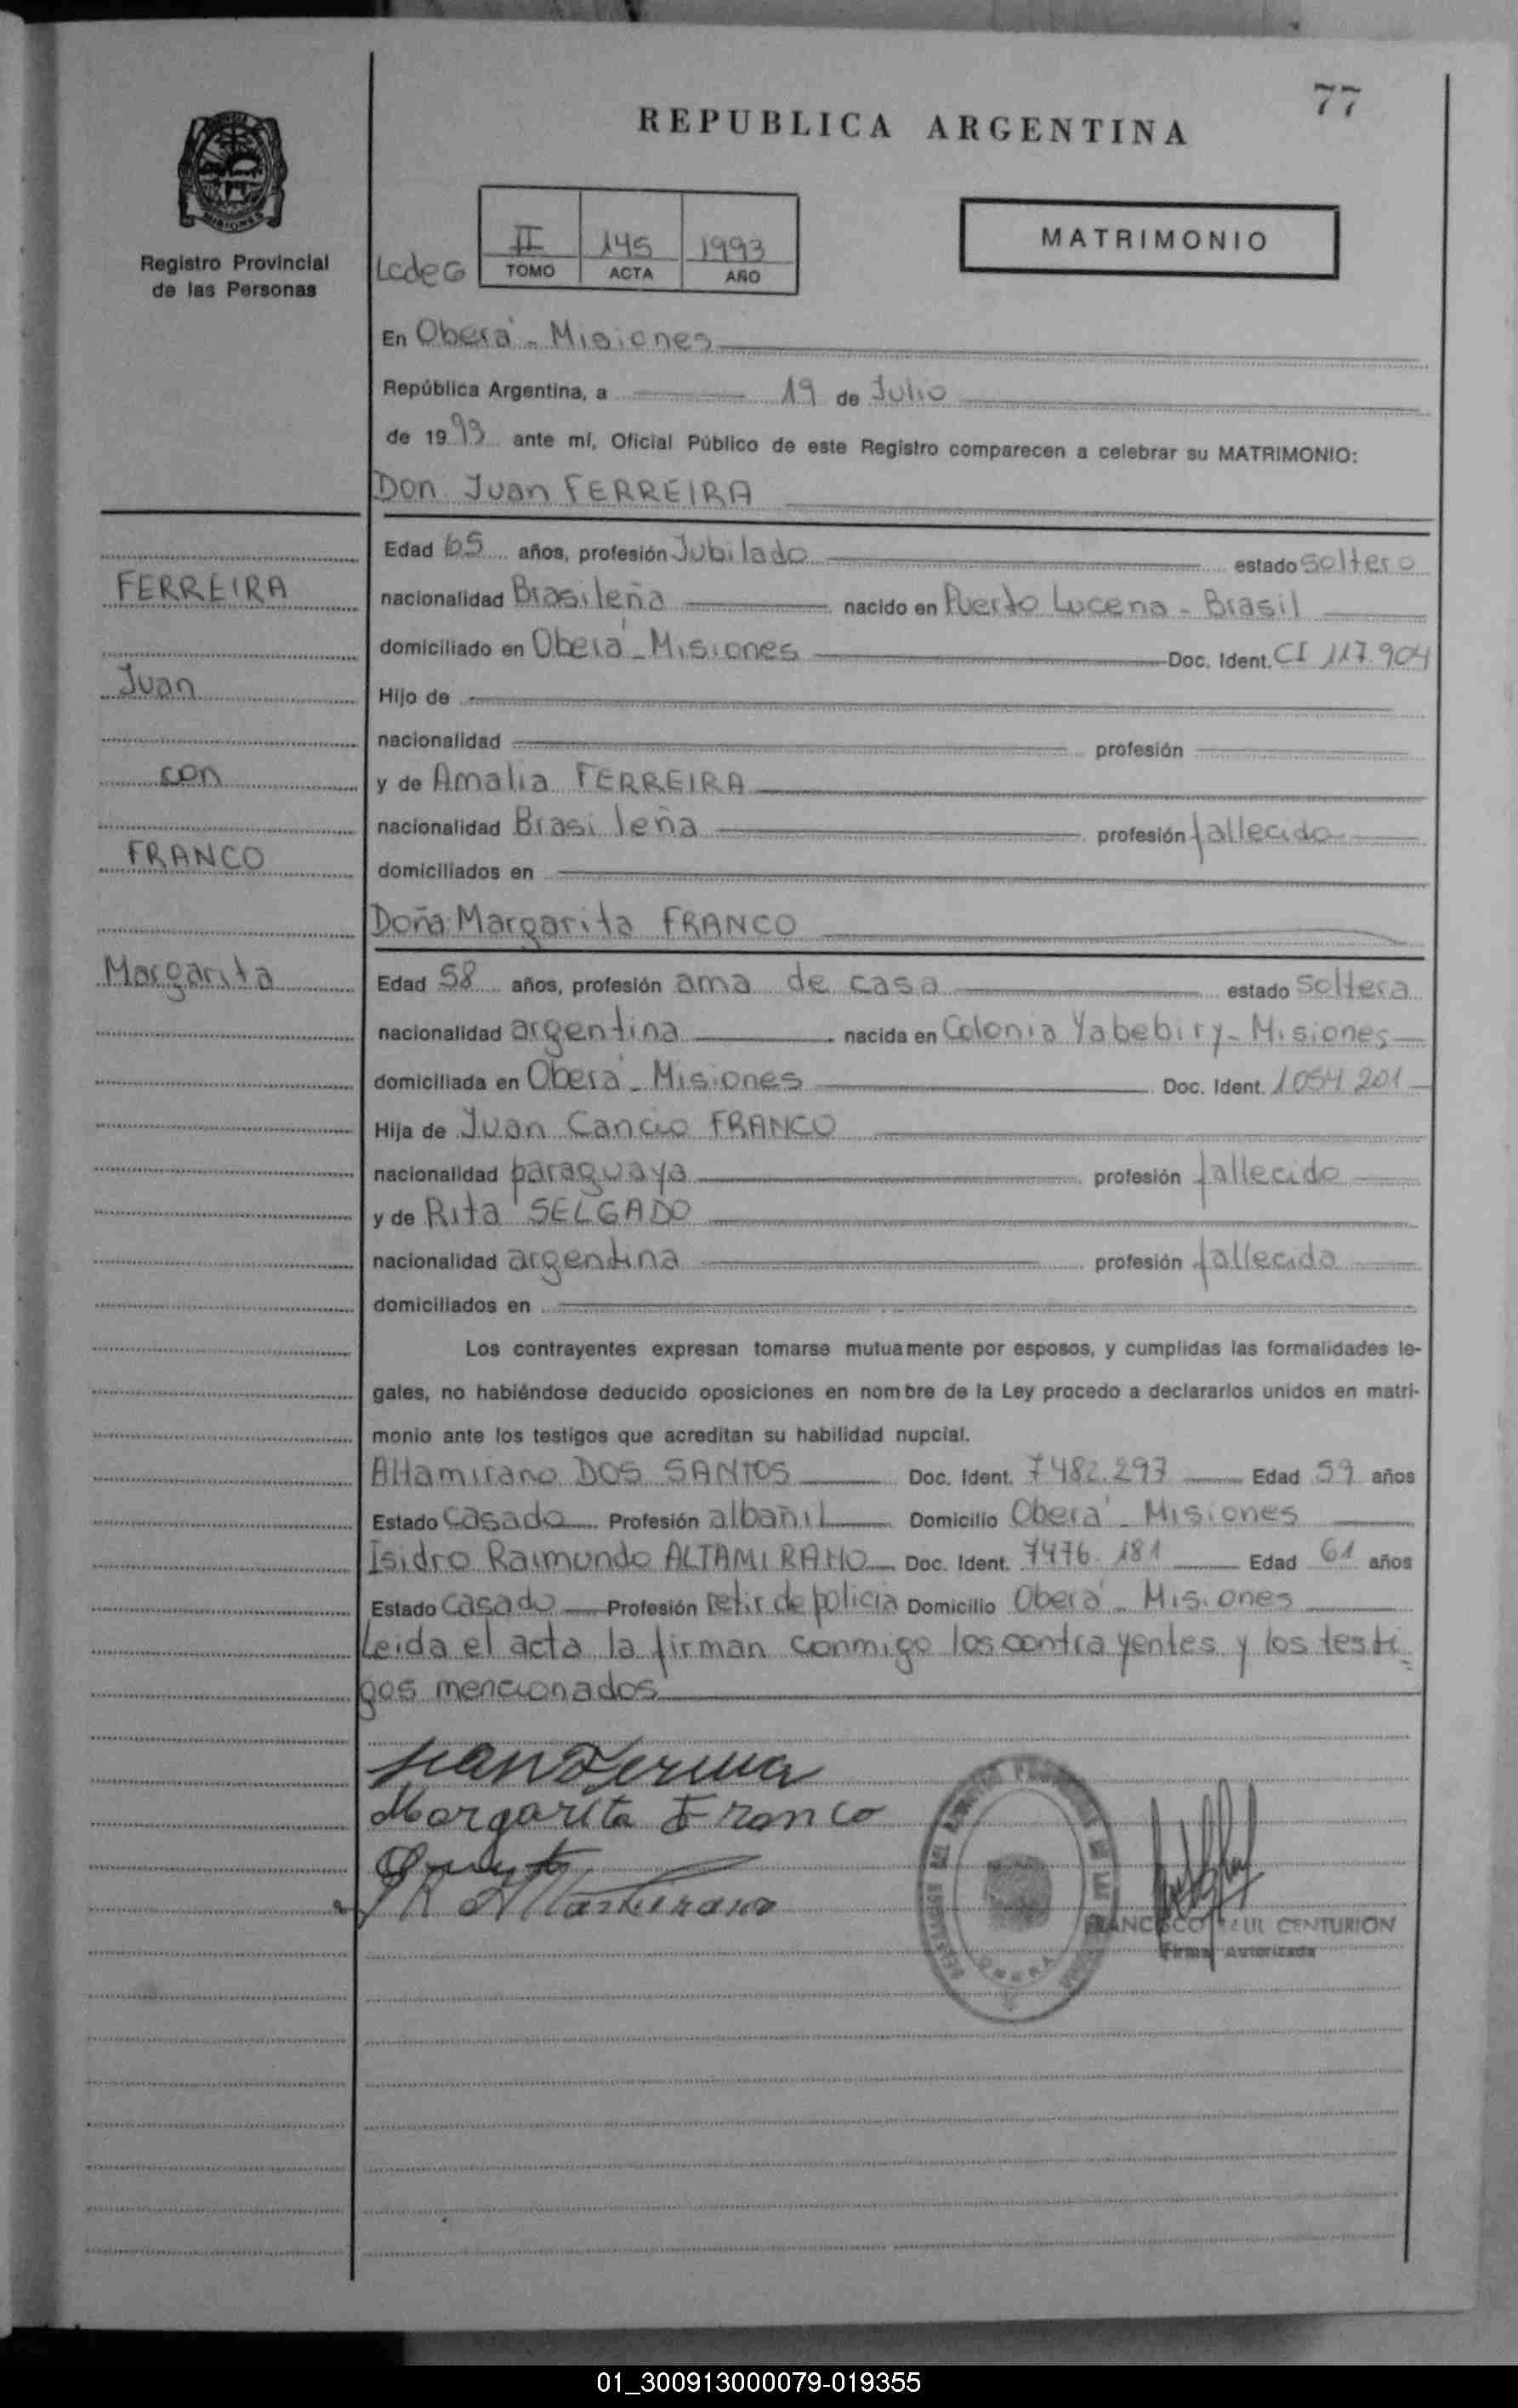 77
REPUBLICA ARGENTINA
MISIONES
Registro Provincial
de las Personas
LcdeG
II 145 1993
TOMO ACTA AÑO
MATRIMONIO
En Oberá - Misiones
República Argentina, a 19 de Julio
de 1993 ante mí, Oficial Público de este Registro comparecen a celebrar su MATRIMONIO:
Don Juan FERREIRA
Edad 65 años, profesión Jubilado estado soltero
FERREIRA
nacionalidad Brasileña nacido en Puerto Lucena - Brasil
domiciliado en Oberá - Misiones Doc. Ident. CI 117.904
Juan
Hijo de
nacionalidad profesión
con
y de Amalia FERREIRA
nacionalidad Brasileña profesión fallecida
FRANCO
domiciliados en
Doña Margarita FRANCO
Margarita
Edad 58 años, profesión ama de casa estado soltera
nacionalidad argentina nacida en Colonia Yabebiry - Misiones
domiciliada en Oberá - Misiones Doc. Ident. 1054 201
Hija de Juan Cancio FRANCO
nacionalidad paraguaya profesión fallecido
y de Rita SELGADO
nacionalidad argentina profesión fallecida
domiciliados en
Los contrayentes expresan tomarse mutuamente por esposos, y cumplidas las formalidades le-
gales, no habiéndose deducido oposiciones en nombre de la Ley procedo a declararlos unidos en matri-
monio ante los testigos que acreditan su habilidad nupcial.
Altamirano DOS SANTOS Doc. Ident. 7482.297 Edad 59 años
Estado casado Profesión albañil Domicilio Oberá - Misiones
Isidro Raimundo ALTAMIRANO Doc. Ident. 7476.181 Edad 61 años
Estado casado Profesión retir de policia Domicilio Oberá - Misiones
Leida el acta la firman conmigo los contrayentes y los testi=
gos mencionados
Margarita Franco
I R Altamirano
OBERA
FRANCISCO RAUL CENTURION
Firma Autorizada
01_300913000079-019355